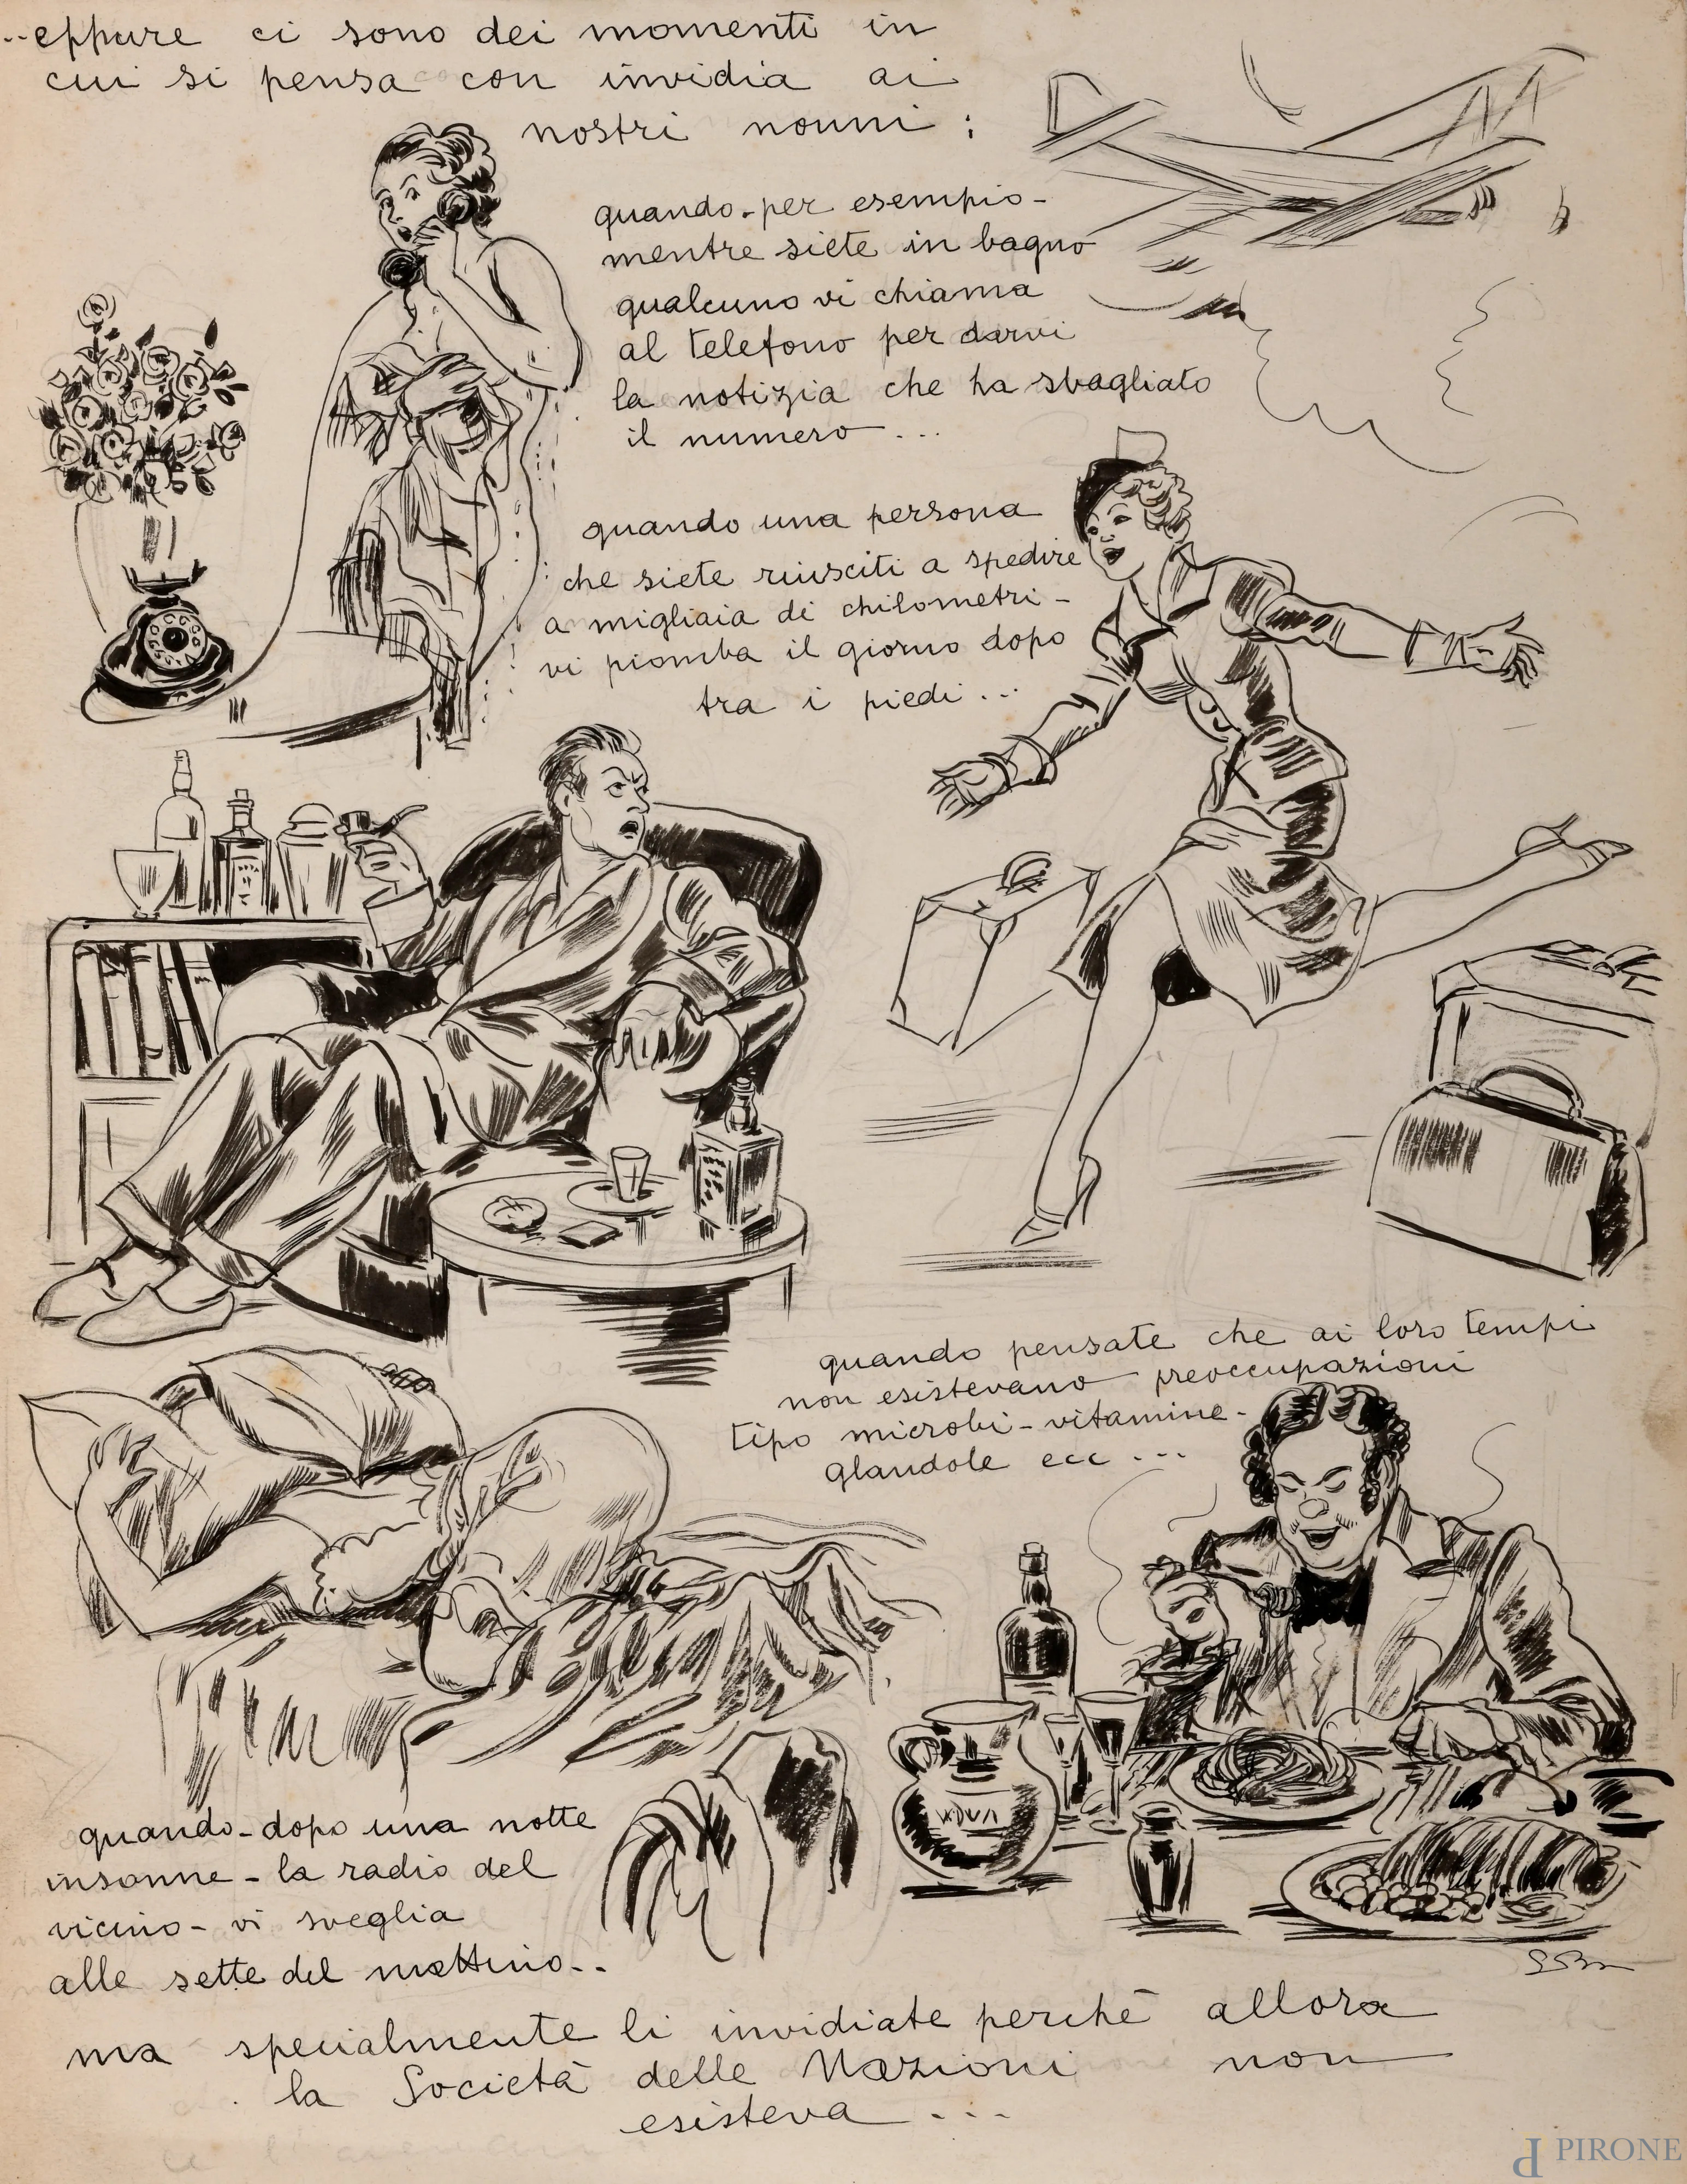 ..eppure ci sono dei momenti in
cui si pensa con invidia ai
nostri nonni :
quando-per esempio-
mentre siete in bagno
qualcuno vi chiama
al telefono per darvi
la notizia che ha sbagliato
il numero...
quando una persona
che siete riusciti a spedire
a migliaia di chilometri-
vi piomba il giorno dopo
tra i piedi...
quando pensate che ai loro tempi
non esistevano preoccupazioni
tipo microbi-vitamine-
glandole ecc...
quando-dopo una notte
insonne-la radio del
vicino-vi sveglia
alle sette del mattino..
ma specialmente li invidiate perchè allora
la Società delle Nazioni non
esisteva...
PIRONE